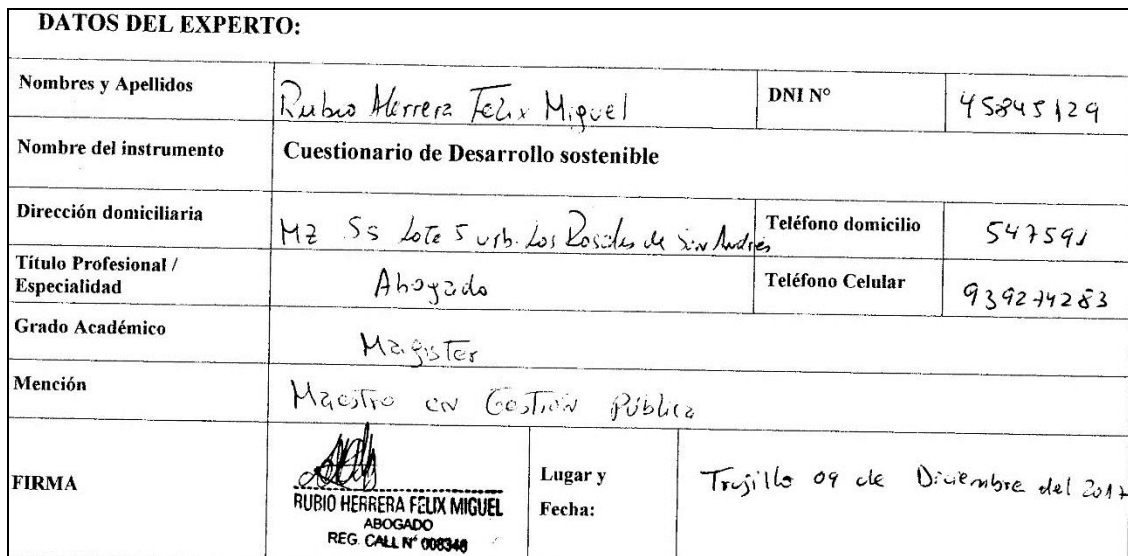 DATOS DEL EXPERTO:
Nombres y Apellidos
Rubio Herrera Felix Miguel
DNI N°
45845129
Nombre del instrumento
Cuestionario de Desarrollo sostenible
Dirección domiciliaria
Mz Ss Lote 5 urb. Los Rosales de San Andrés
Teléfono domicilio
547591
Título Profesional /
Especialidad
Abogado
Teléfono Celular
939274283
Grado Académico
Magister
Mención
Maestro en Gestión Pública
FIRMA
RUBIO HERRERA FELIX MIGUEL
ABOGADO
REG. CALL N° 008346
Lugar y
Fecha:
Trujillo 09 de Diciembre del 2017